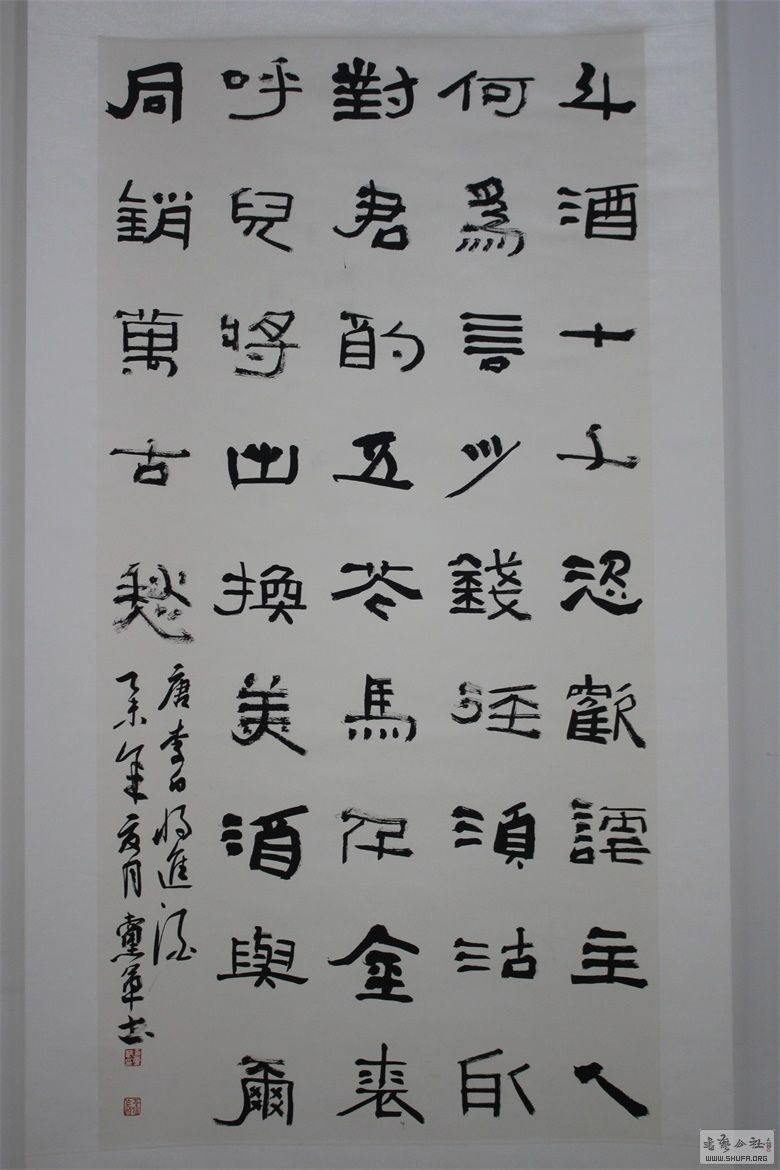 斗酒十千恣歡謔主人
何爲言少錢徑須沽取
對君酌五花馬仟金裘
呼兒將出換美酒與爾
同銷萬古愁
唐李白將進酒
乙未年夏月軍书
書藝公社
WWW.SHUFA.ORG